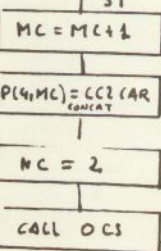 ST
MC = MC+1
P(4,MC) = CC2 CAR
CONCAT
NC = 2
CALL OCS